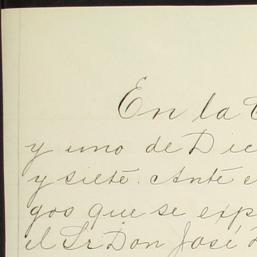 En la
y uno de Dic
y siete. Ante e
gos que se exp
el Sr Don José